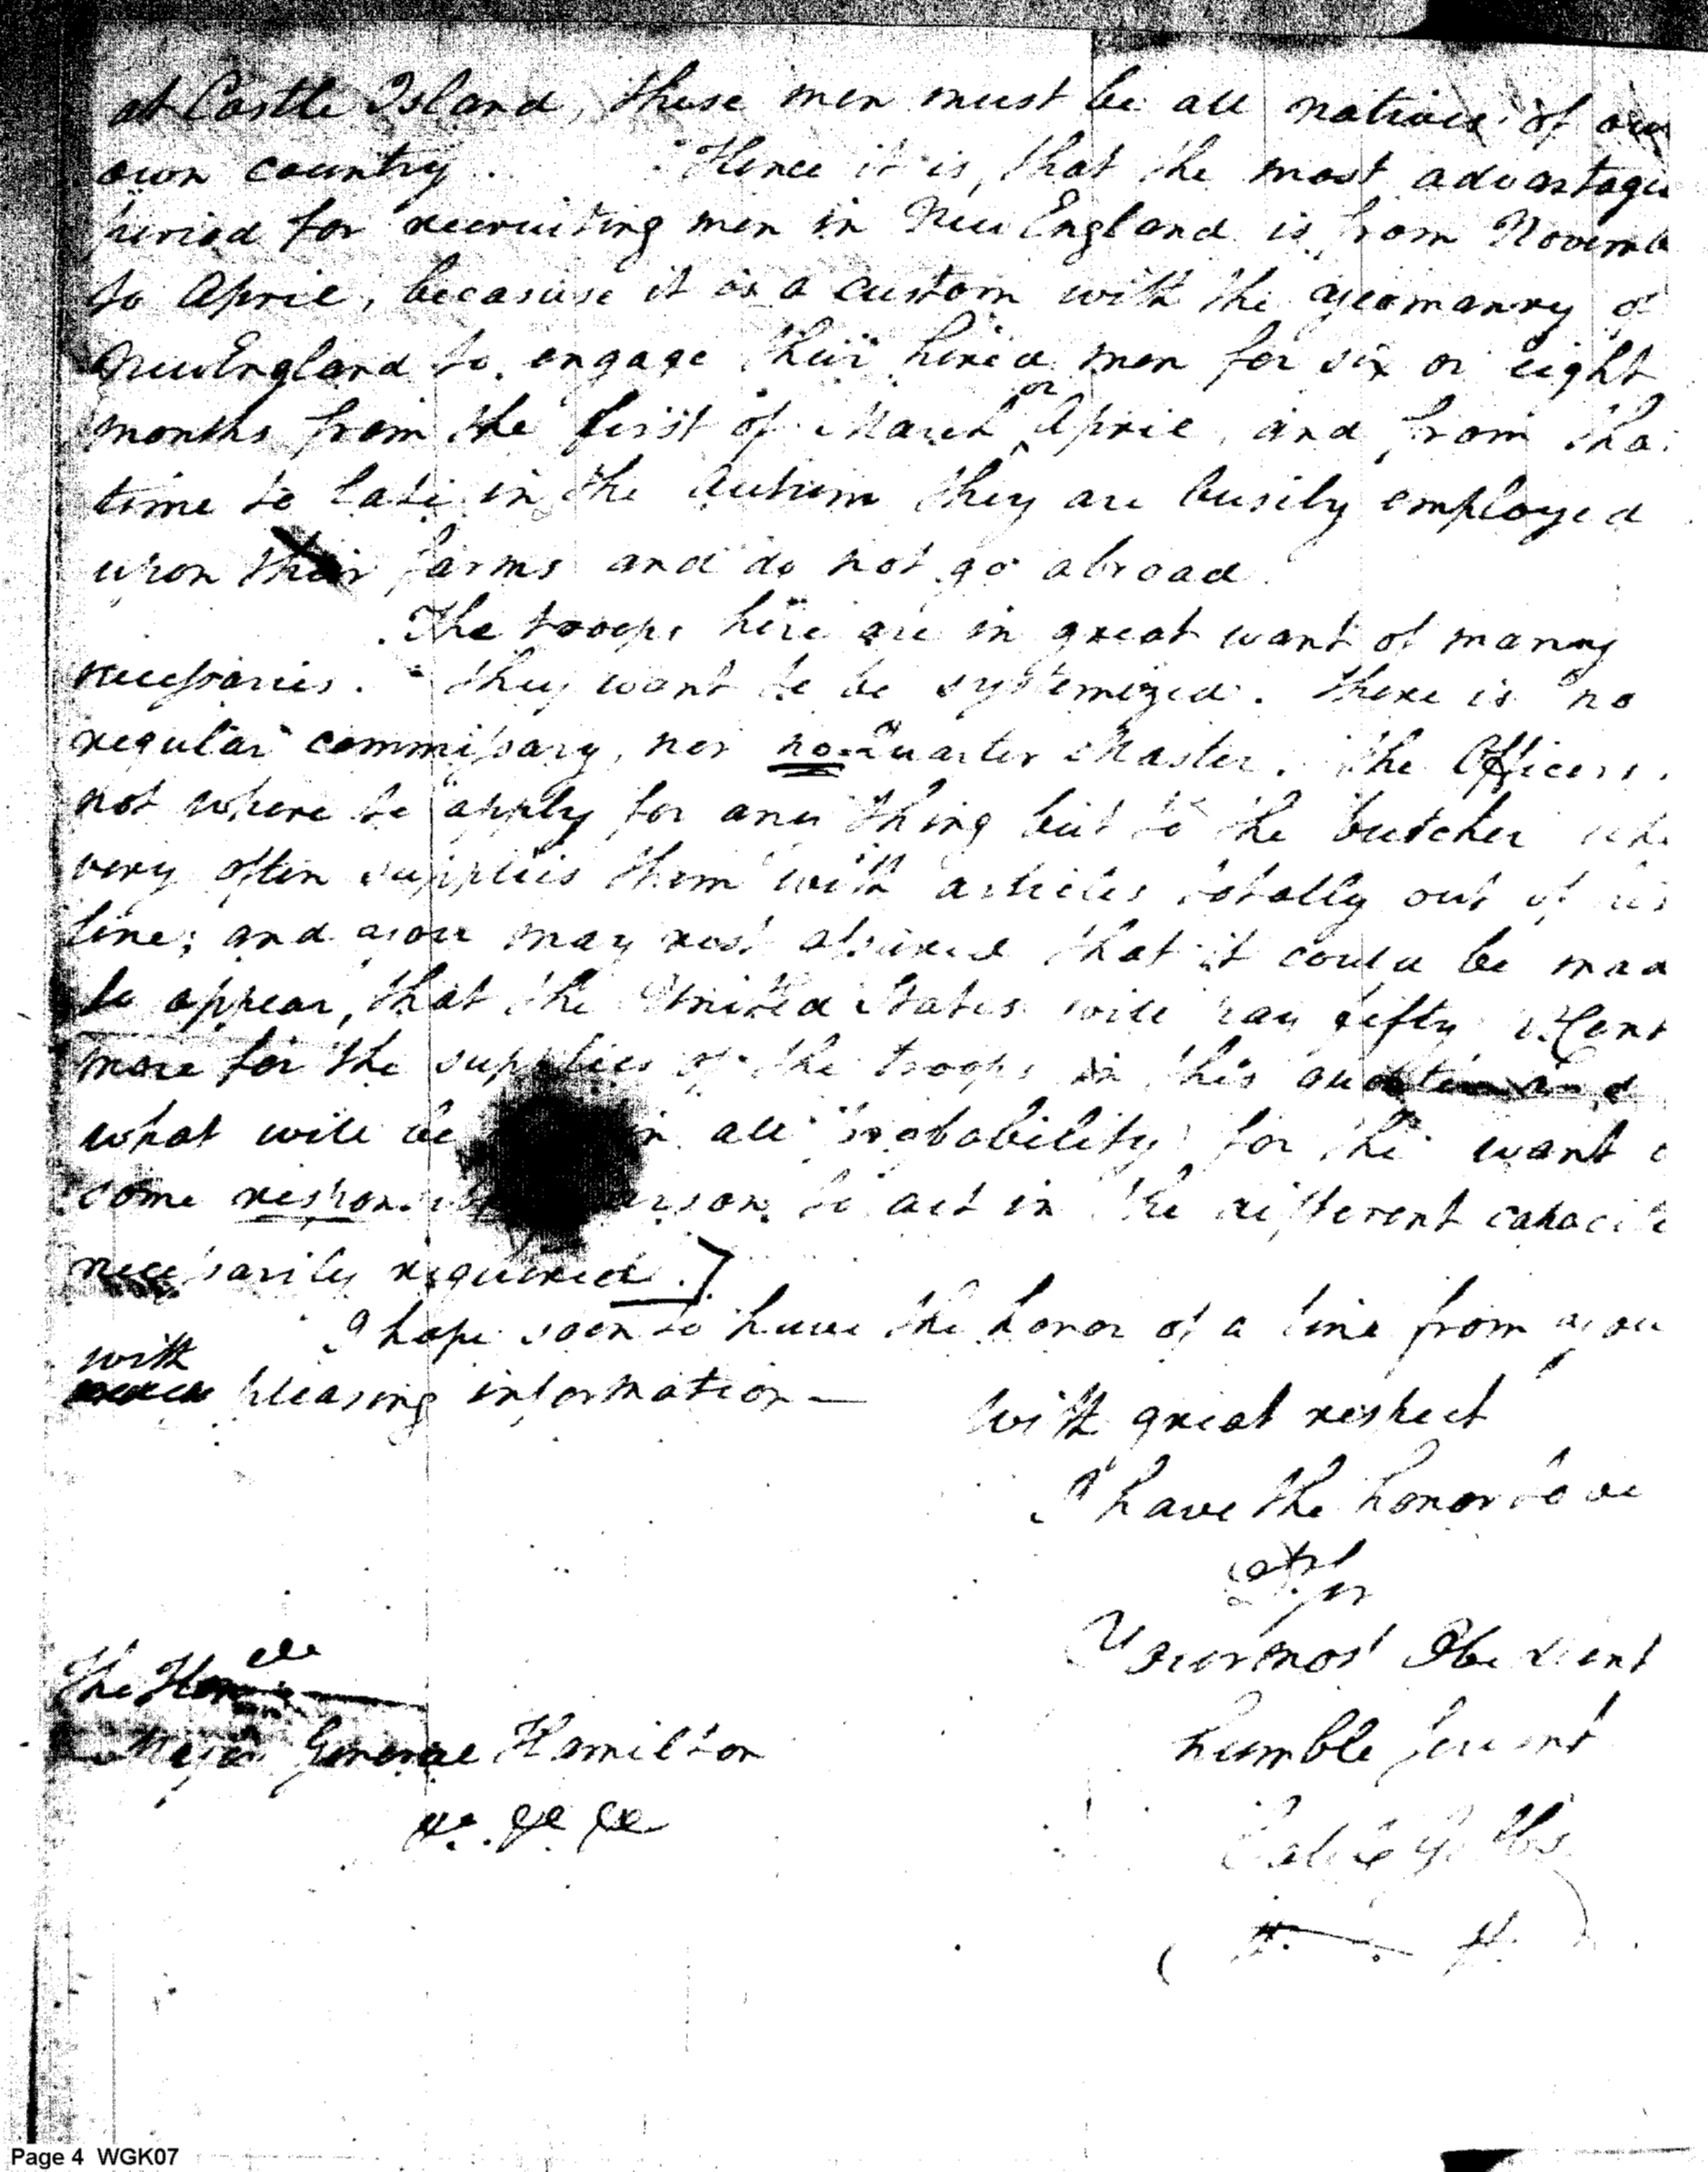 at Castle Island, these men must be all natives of our
own country. Hence it is, that the most advantagio
period for recruiting men in New England is from Novemb
to April, becasuse it is a custom with the yeomanry of
NewEngland to engage their hired men for six or eight
months from the first of March or April, and from tha
time to late in the Autum they are busily employed
upon their farms and do not go abroad.
The troops here are in great want of many
necessaries. They want to be systemized. there is no
regular commissary, nor no Quarter Master. The Officers
not where to apply for any thing but to the butcher who
very often supplies them with articles totally out of his
line; and you may rest assured that it could be mad
to appear, that the United States will pay fifty P Cent
more for the supplies of the troops in this
what will be in all probability for the want o
some person to act in the different capacite
necessarily required.]
I hope soon to have the honor of a line from you
with pleasing information—
With great respect
I have the honor to be
Sir
Your most Obedient
humble servant
Caleb Gibbs
The Honble
Major General Hamilton
&c. &c &c
Page 4 WGK07